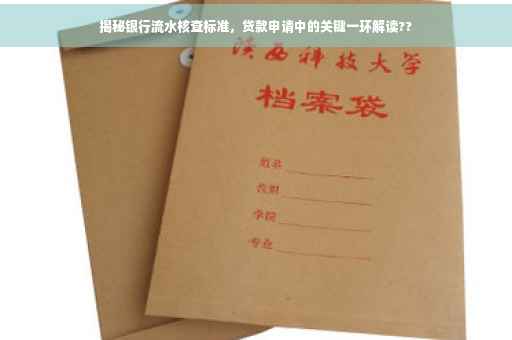 揭秘银行流水核查标准，贷款申请中的关键一环解读??
陕西科技大学
档案袋
姓名
学院
专业